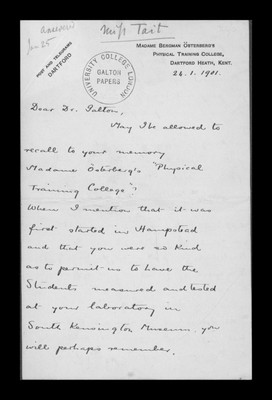 answered
Jan 25
Miss Tait
POST AND TELEGRAMS
DARTFORD
UNIVERSITY COLLEGE LONDON
GALTON
PAPERS
MADAME BERGMAN ÖSTERBERG'S
PHYSICAL TRAINING COLLEGE,
DARTFORD HEATH, KENT.
24.1.1901.
Dear Dr. Galton,
May I be allowed to
recall to your memory
Madame Österberg's "Physical
Training College"?
When I mention that it was
first started in Hampstead
and that you were so kind
as to permit us to have the
Students measured and tested
at your laboratory in
South Kensington Museum, you
will perhaps remember.